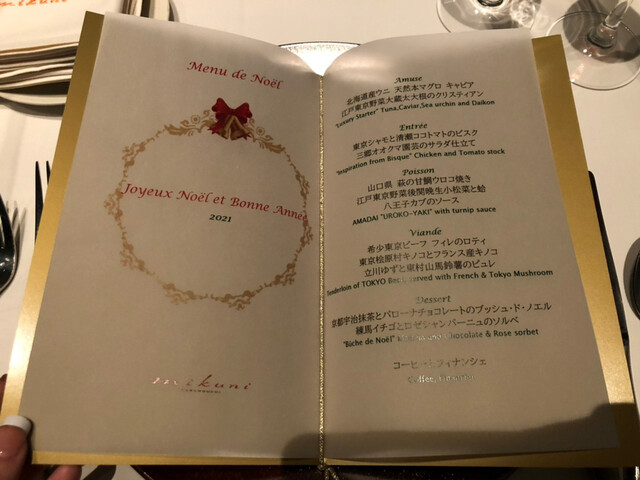 mikuni
Menu de Noël
Joyeux Noël et Bonne Année
2021
mikuni
Amuse
北海道産ウニ 天然本マグロ キャビア
江戸東京野菜大蔵太大根のクリスティアン
"Luxury Starter" Tuna,Caviar,Sea urchin and Daikon
Entrée
東京シャモと清瀬ココトマトのビスク
三郷オオクマ園芸のサラダ仕立て
"Inspiration from Bisque" Chicken and Tomato stock
Poisson
山口県 萩の甘鯛ウロコ焼き
江戸東京野菜後関晩生小松菜と蛤
八王子カブのソース
AMADAI "UROKO-YAKI" with turnip sauce
Viande
希少東京ビーフ フィレのロティ
東京松原村キノコとフランス産キノコ
立川ゆずと東村山馬鈴薯のピュレ
Tenderloin of TOKYO Beef served with French & Tokyo Mushroom
Dessert
京都宇治抹茶とバローナチョコレートのブッシュ・ド・ノエル
練馬イチゴとロゼシャンパーニュのソルベ
"Bûche de Noël" Chocolate & Rose sorbet
コーヒーとフィナンシェ
Coffee,